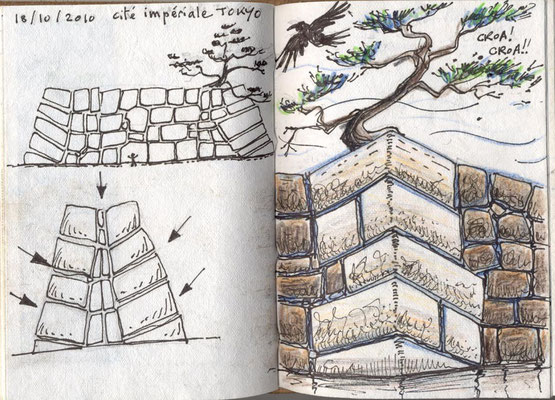 18/10/2010 cité impériale TOKYO
CROA!
CROA!!